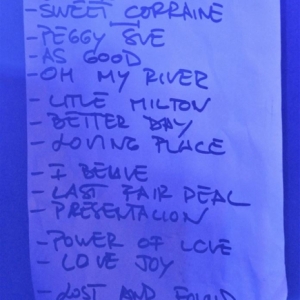 - SWEET CORRAINE
- PEGGY SUE
- AS GOOD
- OH MY RIVER
- LITLE MILTON
- BETTER DAY
- LOVING PLACE
- I BELIVE
- LAST FAIR DEAL
- PRESENTACION
- POWER OF LOVE
- LOVE JOY
- LOST AND FOUND